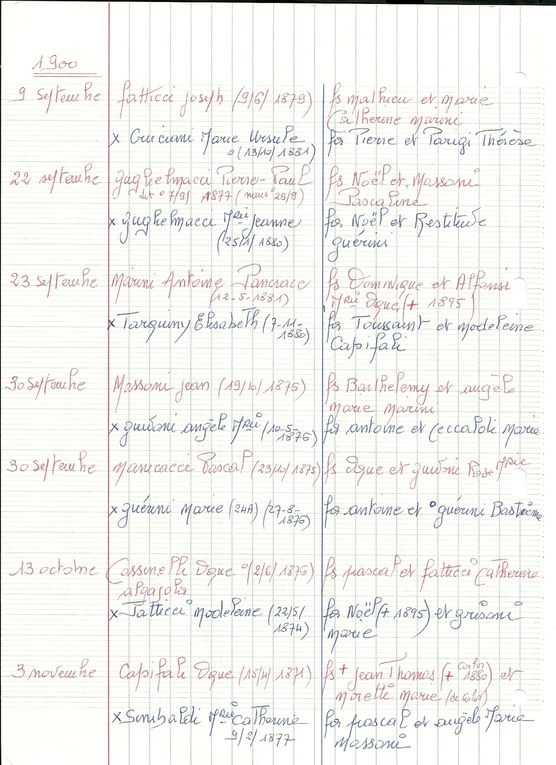 1900
9 Septembre fatticci Joseph (9/6/1879) fs mathieu et marie
Catherine marini
x Guiciani Marie Ursule fa Pierre et Parigi Thérèse
o (13/10/1881)
22 septembre guglielmacci Pierre-Paul fs Noël et Massoni
1877 Pascaline
x guglielmacci Mrie Jeanne fa Noël et Restitude
(25/1/1880) guérini
23 septembre Marini Antoine Pancrace fs Dominique et Alfonsi
(12-5-1881) Mrie Dque (+ 1895)
x Tarquiny Elisabeth (7-11- fa Toussaint et modeleine
1880) Capifali
30 Septembre Massoni Jean (19/10/1876) fs Barthelemy et angèle
marie marini
x guidoni angèle Mrie (10-5- fa antoine et Ceccaldi marie
1876)
30 Septembre manicacci Pascal (23/10/1875) fs Dque et guidoni Rose Mrie
x guérini Marie (24A) (27-8- fa antoine et guérini
1876)
13 octobre Cassinelli Dque o (2/6/1875) fs pascal et fatticci Catherine
algajola
x Fatticci modeleine (22/5/ fa Noël (+ 1895) et grisoni
1874) marie
3 novembre Capifali Dque (15/4/1871) fs + Jean Thomas (+ calvi
1880) et
moretti Marie
x Sinibaldi Mrie Catherine fa pascal et angèle Marie
9/2/1877 Massoni